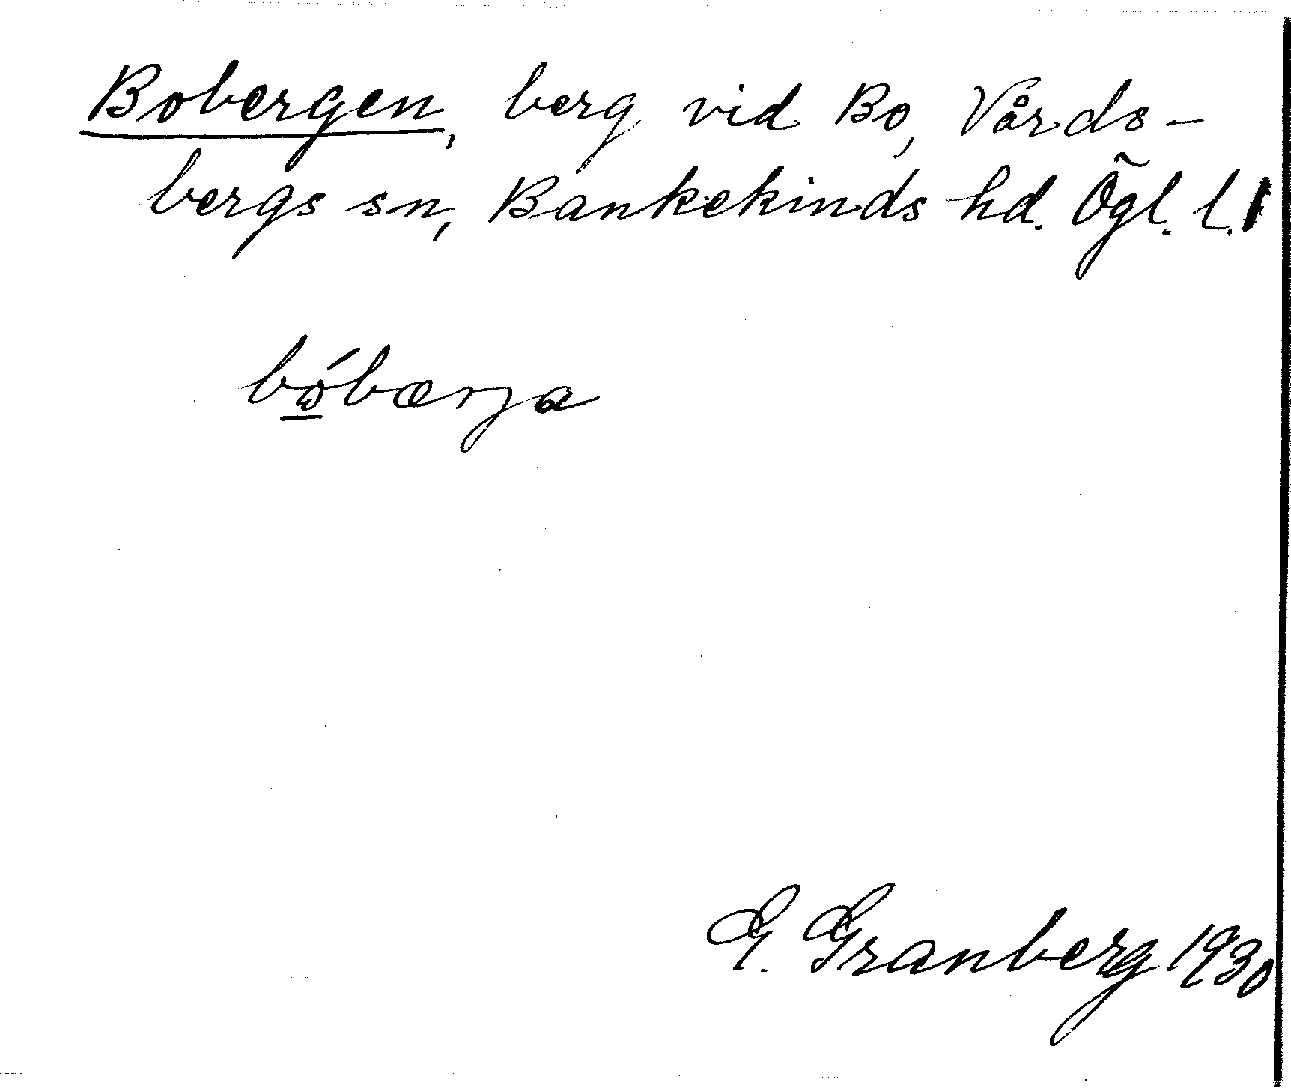 Bobergen, berg vid Bo, Vårds-
bergs sn, Bankekinds hd. Ögl. l.
bóbærja
G. Granberg 1930